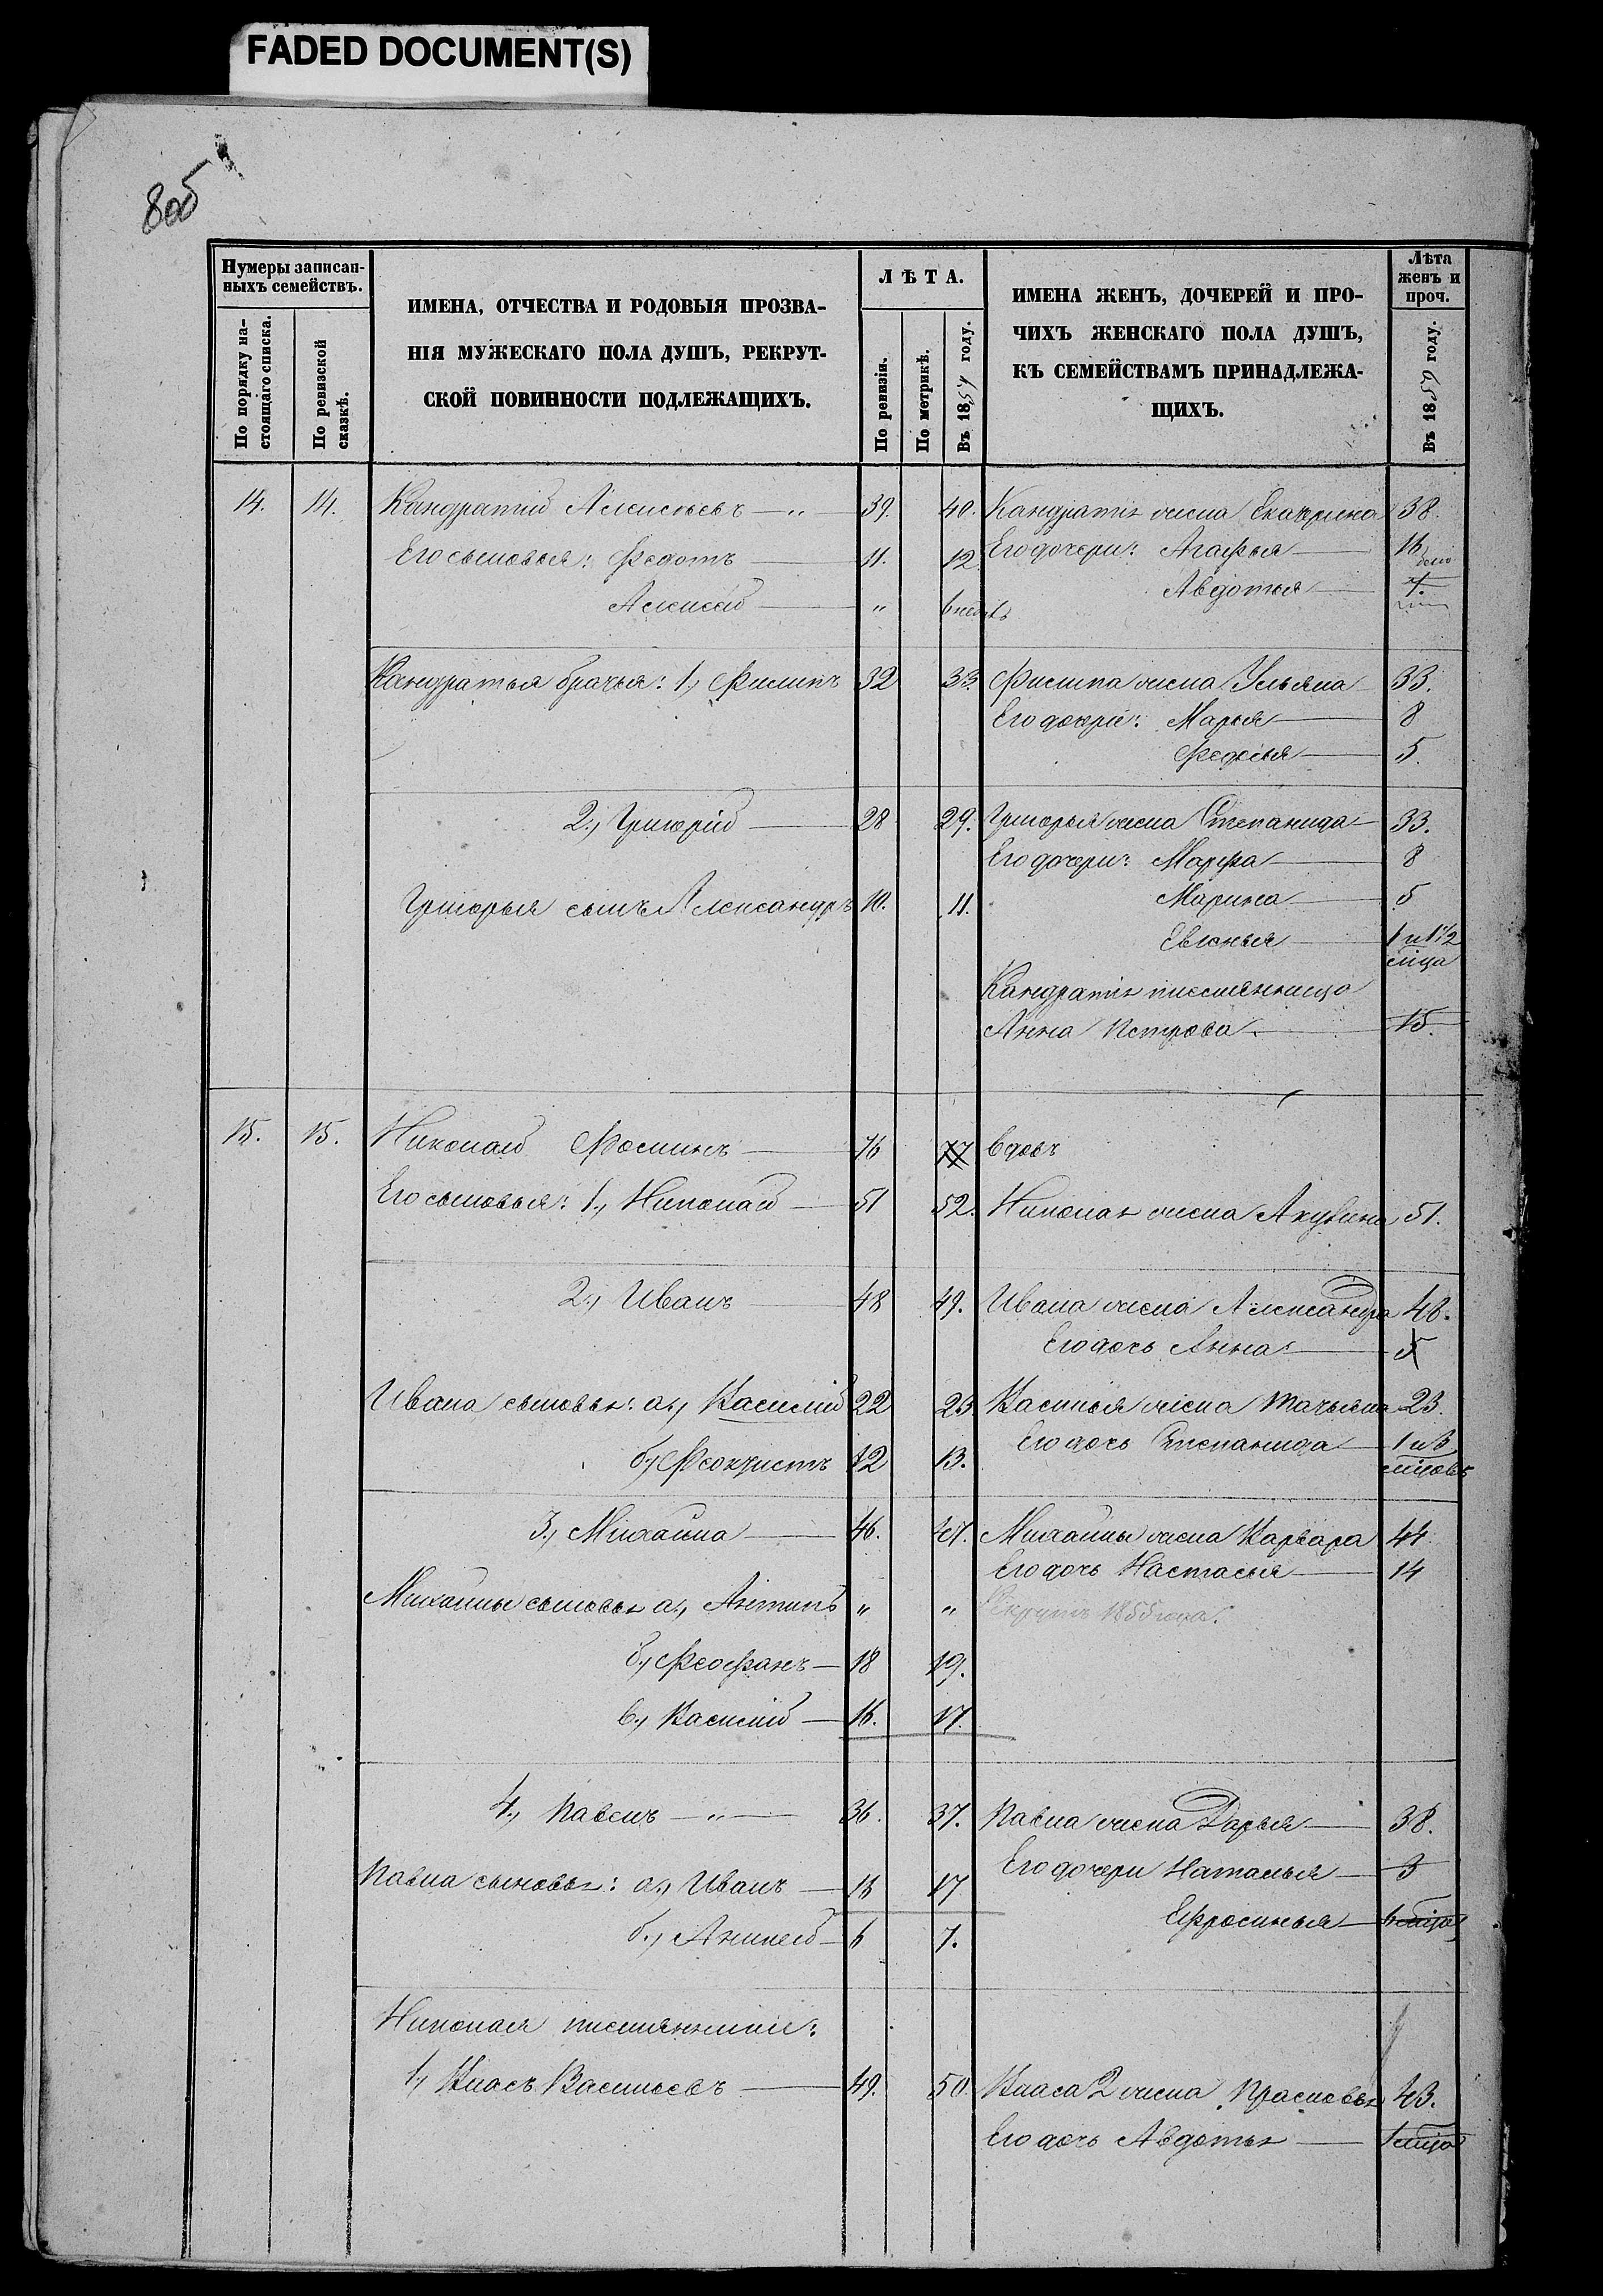 FADED DOCUMENT(S)
8об
Нумеры записан-
ныхъ семействъ.
По порядку на-
стоящаго списка.
По ревизской
сказкѣ.
ИМЕНА, ОТЧЕСТВА И РОДОВЫЯ ПРОЗВА-
НІЯ МУЖЕСКАГО ПОЛА ДУШЪ, РЕКРУТ-
СКОЙ ПОВИННОСТИ ПОДЛЕЖАЩИХЪ.
ЛѢТА.
По ревизіи.
По метрикѣ.
Въ 1859 году.
ИМЕНА ЖЕНЪ, ДОЧЕРЕЙ И ПРО-
ЧИХЪ ЖЕНСКАГО ПОЛА ДУШЪ,
КЪ СЕМЕЙСТВАМЪ ПРИНАДЛЕЖА-
ЩИХЪ.
Лѣта
женъ и
проч.
Въ 1859 году.
14. 14. Кандратій Алексѣевъ — „ — 39. 40. Кандратія жена Екатерина 38.
Его сыновья: Федотъ — 11. 12 Его дочери: Агафья — 16
Алексѣй — „ 6 недѣль Авдотья —
Кандратья братья: 1, Филипъ 32 33. Филипа жена Ульяна 33.
Его дочери: Марья — 8
Федосья — 5.
2, Григорій — 28 29. Григорья жена Степанида — 33.
Его дочери: Марфа — 8
Григорья сынъ Александръ 10. 11. Марина — 5
Евгенья — 1 и 1 1/2
мѣца
Кандратія племянница
Анна Петрова — 15.
15. 15. Николай Фоминъ — 76 77 вдовъ
Его сыновья: 1, Николай — 51 52. Николая жена Акулина 51.
2, Иванъ — 48 49. Ивана жена Александра 48.
Его дочь Анна — 5
Ивана сыновья: а, Василій 22 23 Василья жена Татьяна 23.
б, Феоктистъ 12 13. Его дочь Степанида — 1 и 3
мѣцовъ
3, Михайла — 46. 47. Михайлы жена Варвара 44
Его дочь Настасья — 14
Михайлы сыновья а, Антипъ „ „ Рекрутъ 1855 года.
б, Феофанъ — 18 19.
в, Василій — 16. 17.
4, Павелъ — „ — 36. 37. Павла жена Дарья — 38.
Павла сыновья: а, Иванъ — 16 17 Его дочери Наталья — 3
б, Аникей — 6 7. Ефросинья — 6 мѣцов
Николая племянники:
1, Власъ Васильевъ — 49. 50. Власа 2 жена Прасковья 43.
Его дочь Авдотья — 1 мѣцъ